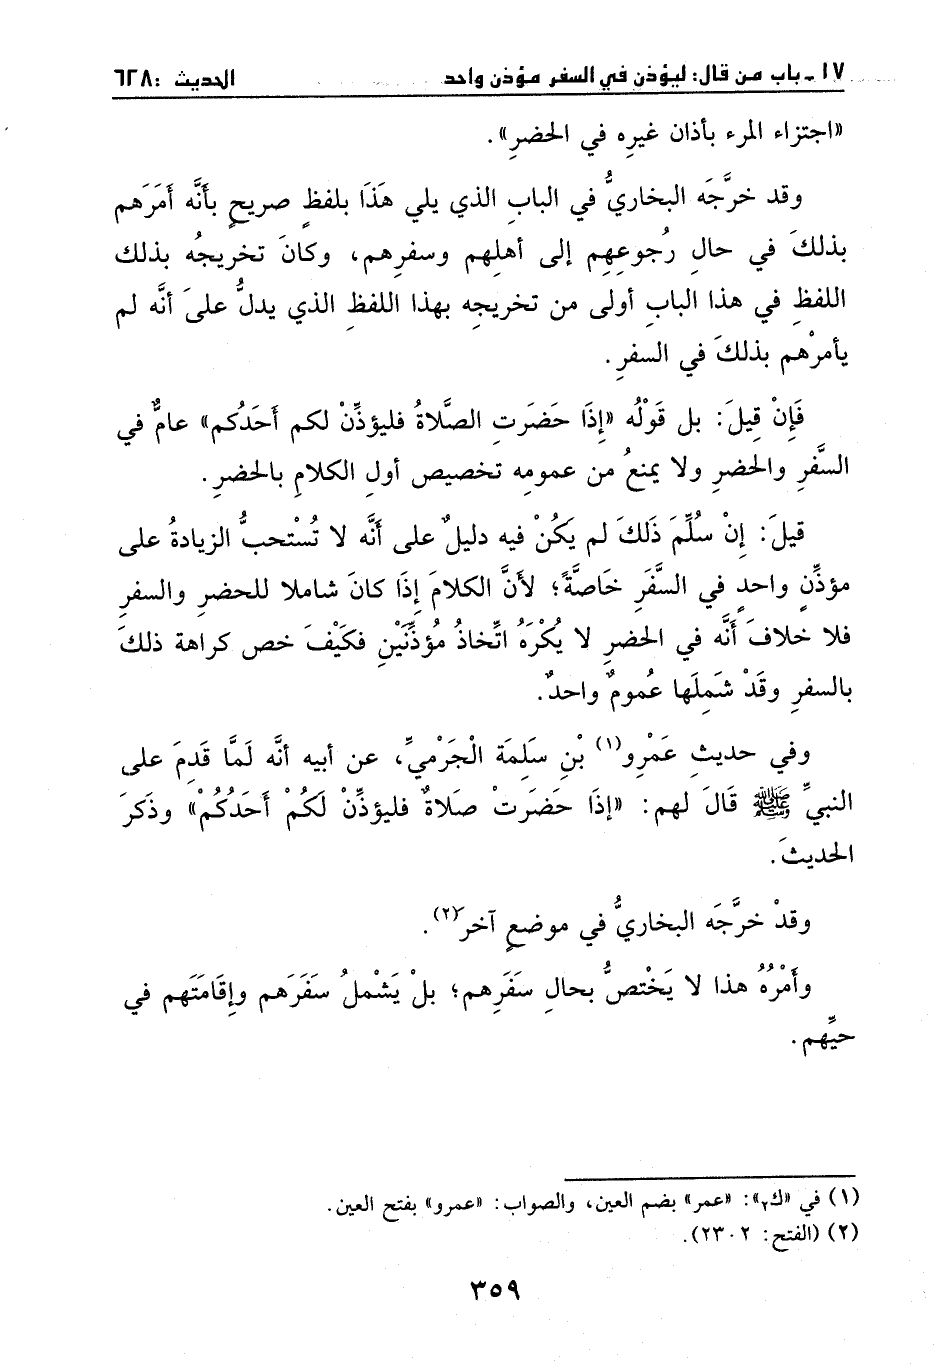 ١٧ - باب من قال: ليؤذن في السفر مؤذن واحد الحديث: ٦٢٨
«اجتزاء المرء بأذان غيرِه في الحضرِ».
وقد خرَّجَه البخاريُّ في البابِ الذي يلي هَذَا بلفظٍ صريحٍ بأنَّه أَمَرَهم
بذلكَ في حالِ رُجوعِهِم إلى أهلِهم وسفرِهم، وكانَ تخريجُه بذلك
اللفظِ في هذا البابِ أولى من تخريجِه بهذا اللفظِ الذي يدلُّ علىَ أنَّه لم
يأمرْهم بذلكَ في السفرِ.
فَإِنْ قِيلَ: بل قَوْلُه «إِذَا حَضَرَتِ الصَّلاةُ فليؤذِّنْ لكم أَحَدُكم» عامٌّ في
السَّفرِ والحضرِ ولا يمنعُ من عمومِه تخصيص أولِ الكلامِ بالحضرِ.
قيلَ: إِنْ سُلِّمَ ذَلكَ لم يَكُنْ فيه دليلٌ على أنَّه لا تُسْتحبُّ الزيادةُ على
مؤذِّنٍ واحدٍ في السَّفَرِ خَاصَّةً؛ لأنَّ الكلامَ إِذَا كانَ شاملا للحضرِ والسفرِ
فلا خلافَ أنَّه في الحضرِ لا يُكْرَهُ اتِّخاذُ مؤُذِّنَيْنِ فكَيْفَ خص كراهة ذلكَ
بالسفرِ وقَدْ شَمِلَها عُمومٌ واحدٌ.
وفي حديثِ عَمْرِو(١) بْنِ سَلِمَة الْجَرْمِيِّ، عن أبيه أنَّه لَمَّا قَدِمَ على
النبيِّ ﷺ قَالَ لهم: «إِذَا حَضَرَتْ صَلاةٌ فليؤذِّنْ لَكُمْ أَحَدُكُمْ» وذَكرَ
الحديثَ.
وقدْ خرَّجَه البخاريُّ في موضعٍ آخر(٢).
وأَمْرُهُ هذا لا يَخْتصُّ بحالِ سَفَرِهم؛ بلْ يَشْملُ سَفَرَهم وإِقَامَتَهم في
حيِّهم.
(١) في «ك٢»: «عمر» بضم العين، والصواب: «عمرو» بفتح العين.
(٢) (الفتح: ٢٣٠٢).
٣٥٩